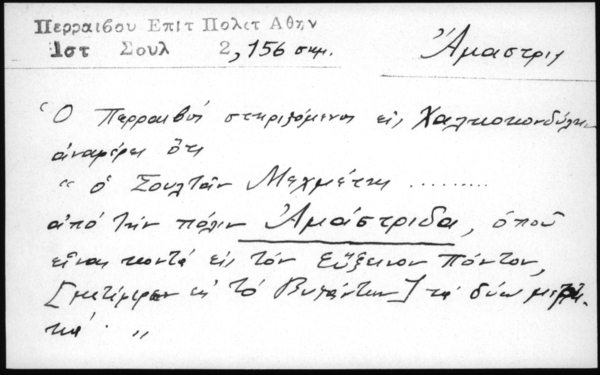 Περραιβου Επιτ Πολιτ Αθην
1στ Σουλ 2, 156 σημ.
Ἀμαστρις
Ὁ Περραιβός στηριζόμενος εἰς Χαλκοκονδύλην
ἀναφέρει ὅτι
" ὁ Σουλτάν Μεχμέτης .........
ἀπό τήν πόλιν Ἀμάστριδα, ὁποῦ
εἶναι κοντά εἰς τόν Εὔξεινον Πόντον,
[μετέφερεν εἰς τό Βυζάντιον] τά δύω
κά. "